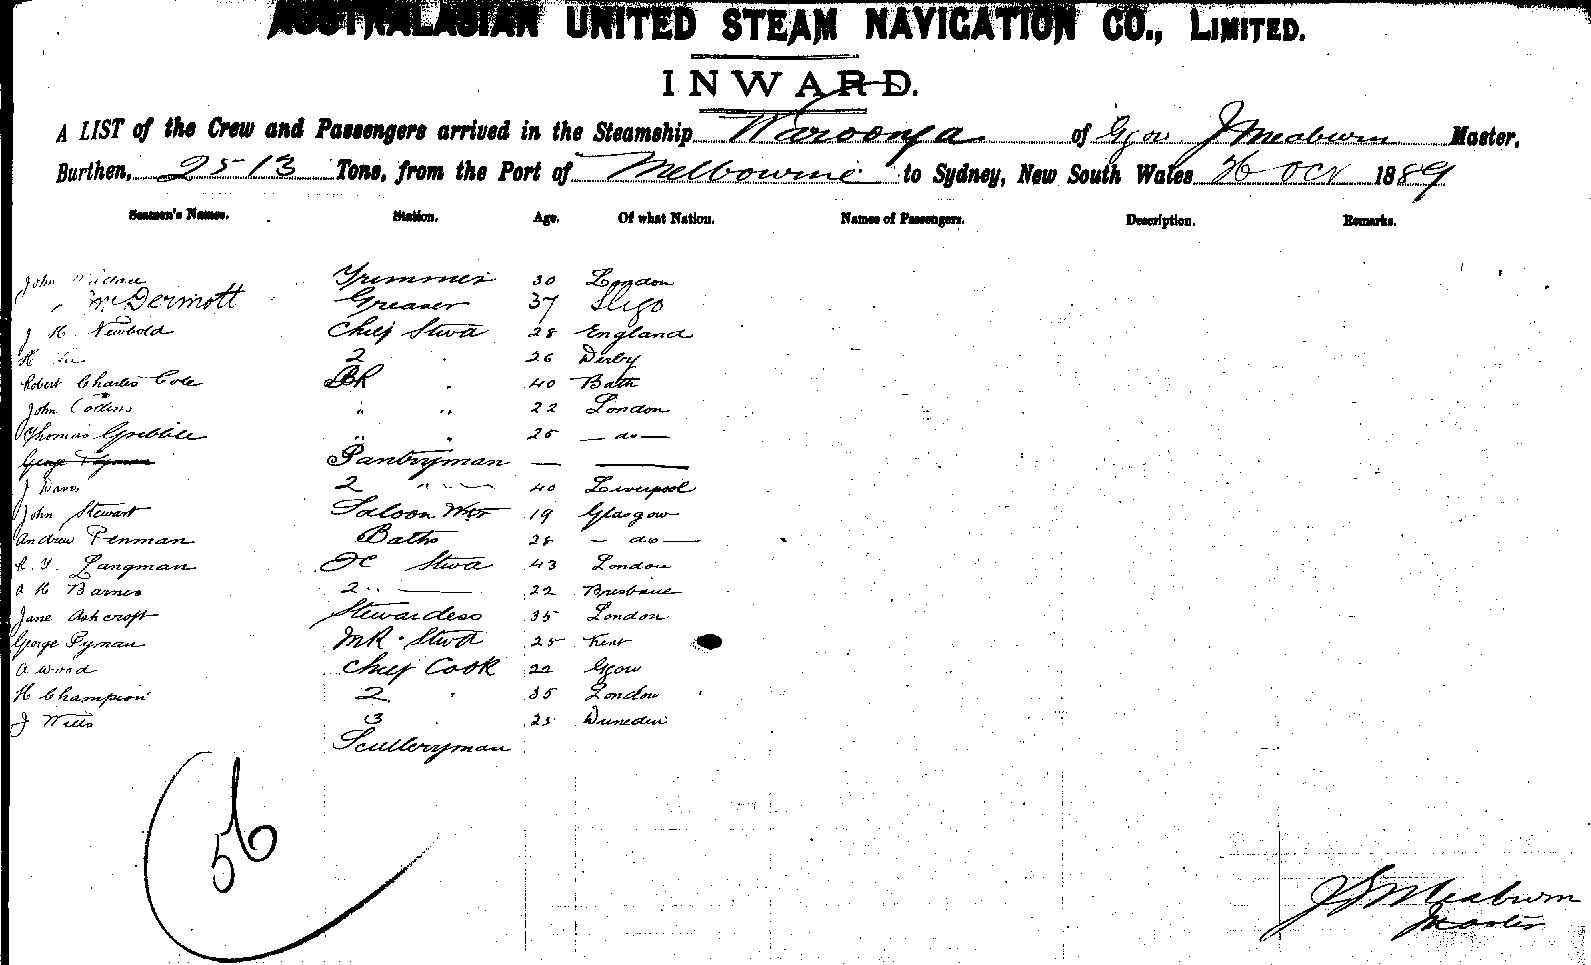 AUSTRALASIAN UNITED STEAM NAVIGATION CO., LIMITED.
INWARD.
A LIST of the Crew and Passengers arrived in the Steamship Waroonga of Gow J Meaburn Master,
Burthen, 2513 Tons, from the Port of Melbourne to Sydney, New South Wales 26 Oct 1889
Seamen's Names. Station. Age. Of what Nation. Names of Passengers. Description. Remarks.
John Trimmer 30 London
McDermott Greaser 37 Sligo
J H Newbold Chief Stwd 28 England
H 2 " 26 Derby
Robert Charles Cole BR " 40 Bath
John Collins " " 22 London
Thomas Gribble " " 25 — do —
George Pyman Pantryman — —
J Davis 2 " 40 Liverpool
John Stewart Saloon Wtr 19 Glasgow
Andrew Penman Baths 28 — do —
Langman Stwd 43 London
A H Barnes 2 " — 22 Brisbane
Jane Ashcroft Stewardess 35 London
George Pyman MR. Stwd 25 Kent
A Wood Chief Cook 22 Ggow
H Champion 2 " 35 London
J Wills 3 " 25 Dunedin
Sculleryman
56
J Meaburn
Master